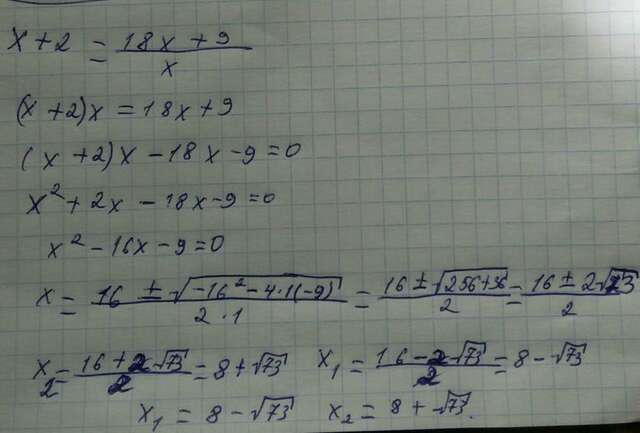 x + 2 = (18x + 9)/x
(x + 2)x = 18x + 9
(x + 2)x - 18x - 9 = 0
x² + 2x - 18x - 9 = 0
x² - 16x - 9 = 0
x = (16 ± √(-16² - 4·1(-9)))/(2·1) = (16 ± √(256+36))/2 = (16 ± 2√73)/2
x₂ = (16 + 2√73)/2 = 8 + √73 x₁ = (16 - 2√73)/2 = 8 - √73
x₁ = 8 - √73 x₂ = 8 + √73.